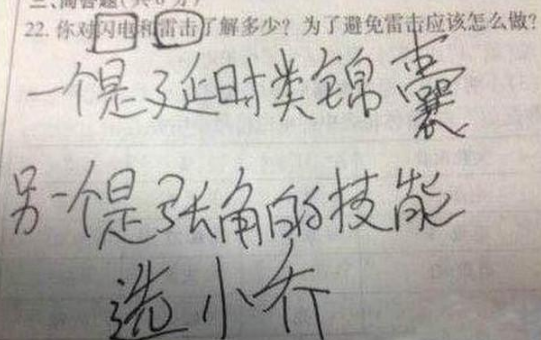 三、简答题(共6分)
22. 你对闪电和雷击了解多少？为了避免雷击应该怎么做？
一个是延时类锦囊
另一个是张角的技能
选小乔